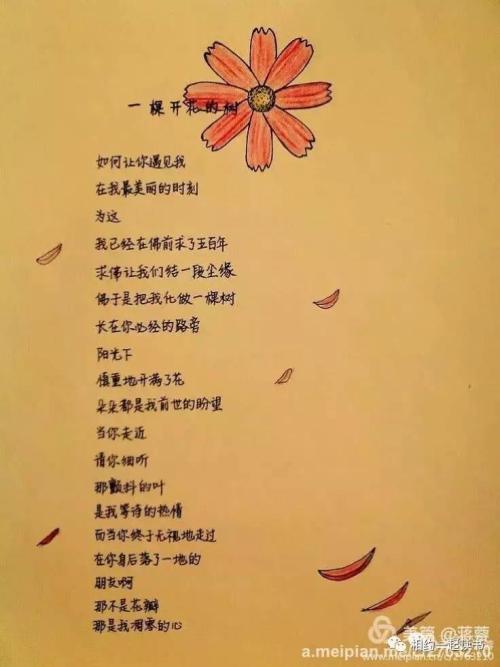 一棵开花的树
如何让你遇见我
在我最美丽的时刻
为这
我已经在佛前求了五百年
求佛让我们结一段尘缘
佛于是把我化做一棵树
长在你必经的路旁
阳光下
慎重地开满了花
朵朵都是我前世的盼望
当你走近
请你细听
那颤抖的叶
是我等待的热情
而当你终于无视地走过
在你身后落了一地的
朋友啊
那不是花瓣
那是我凋零的心
美篇@蒋蓉
相约一起读书
a.meipian.me